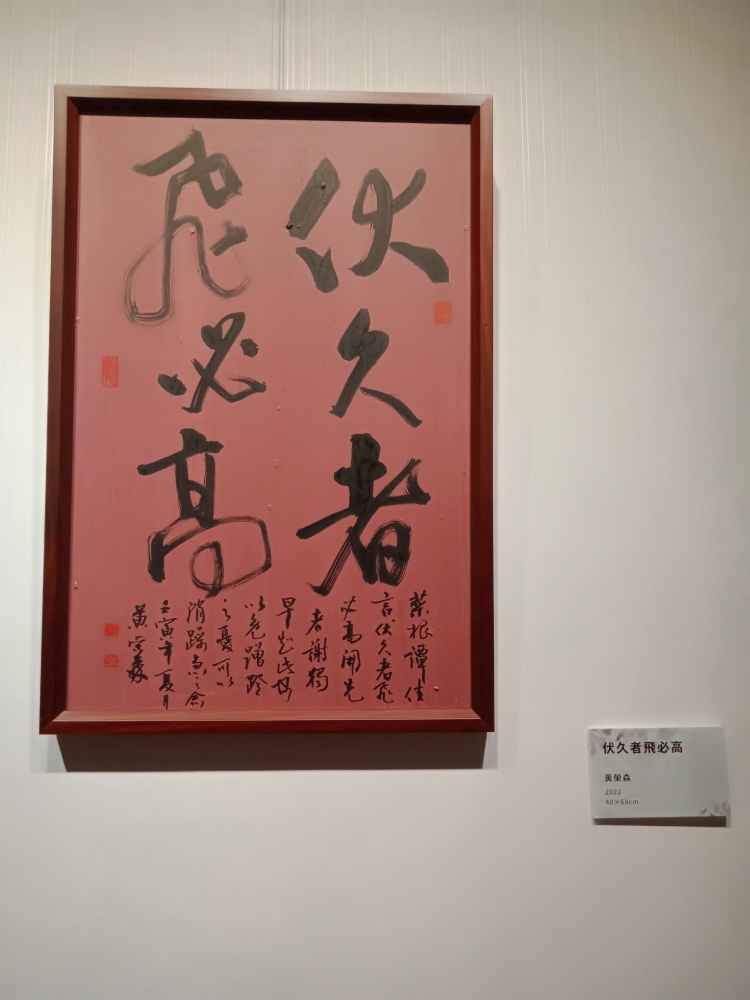 伏久者
飛必高
菜根譚佳
言伏久者飛
必高開先
者謝獨
早知此可
以免蹭蹬
之憂可以
消躁急之念
壬寅年夏月
黃榮森
伏久者飛必高
黃榮森
2022
40×68cm